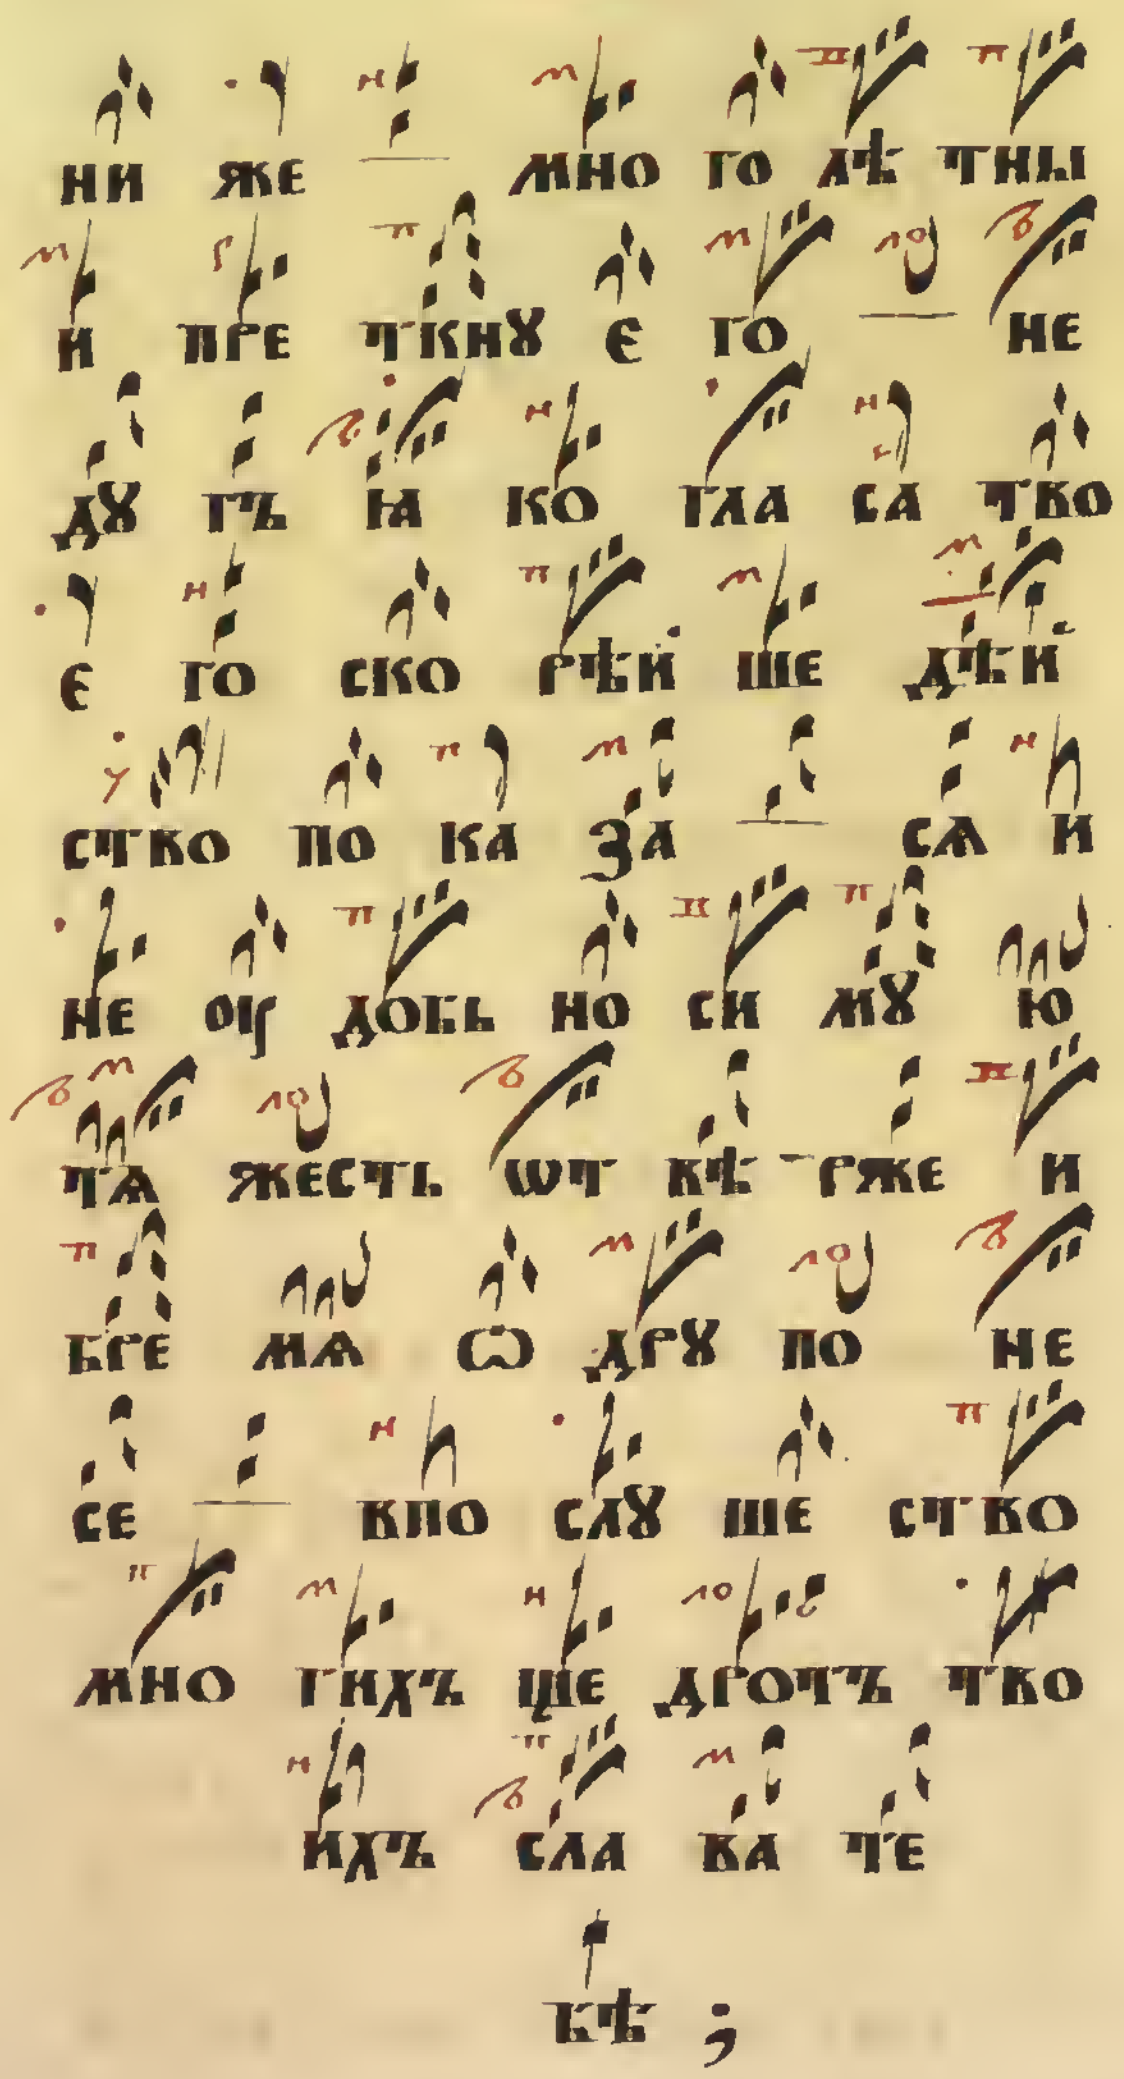 ни ꙗже много лѣтны
и преткнꙋ єго не
дꙋгъ ꙗко гласа тво
єго скорѣйше дѣй
ство показа сѧ и
не оудобь носимꙋю
тѧжесть ѿ вѣрже и
бремѧ ѻдрꙋ поне
се впослꙋшество
многихъ щедротъ тво
ихъ слава те
бѣ ;